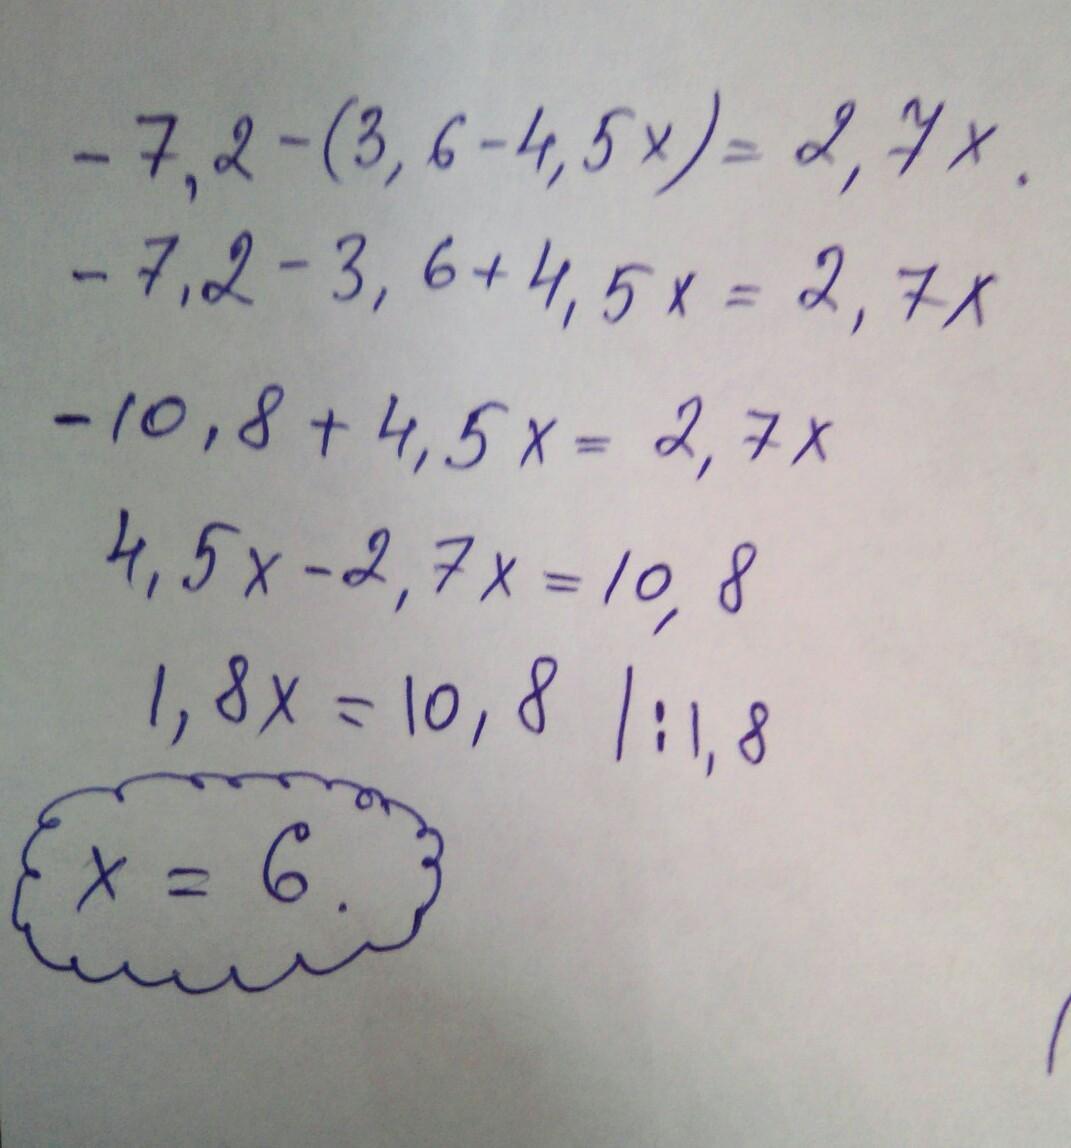 -7,2-(3,6-4,5x)=2,7x.
-7,2-3,6+4,5x=2,7x
-10,8+4,5x=2,7x
4,5x-2,7x=10,8
1,8x=10,8 |:1,8
x=6.